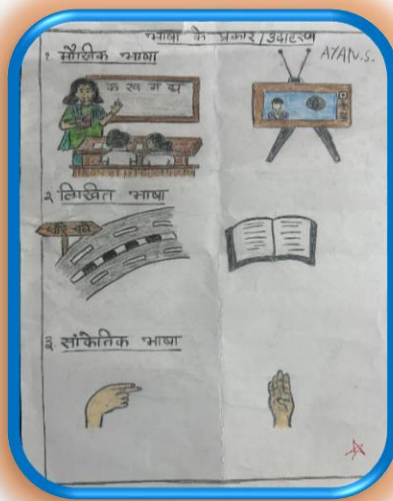 भाषा के प्रकार/उदाहरण
AYAN.S.
१ मौखिक भाषा
क ख ग घ
२ लिखित भाषा
धीरे चले
३. सांकेतिक भाषा